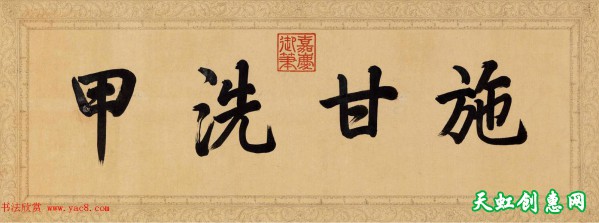 嘉慶
御筆
施甘洗甲
书法欣赏 www.yac8.com
天虹创惠网